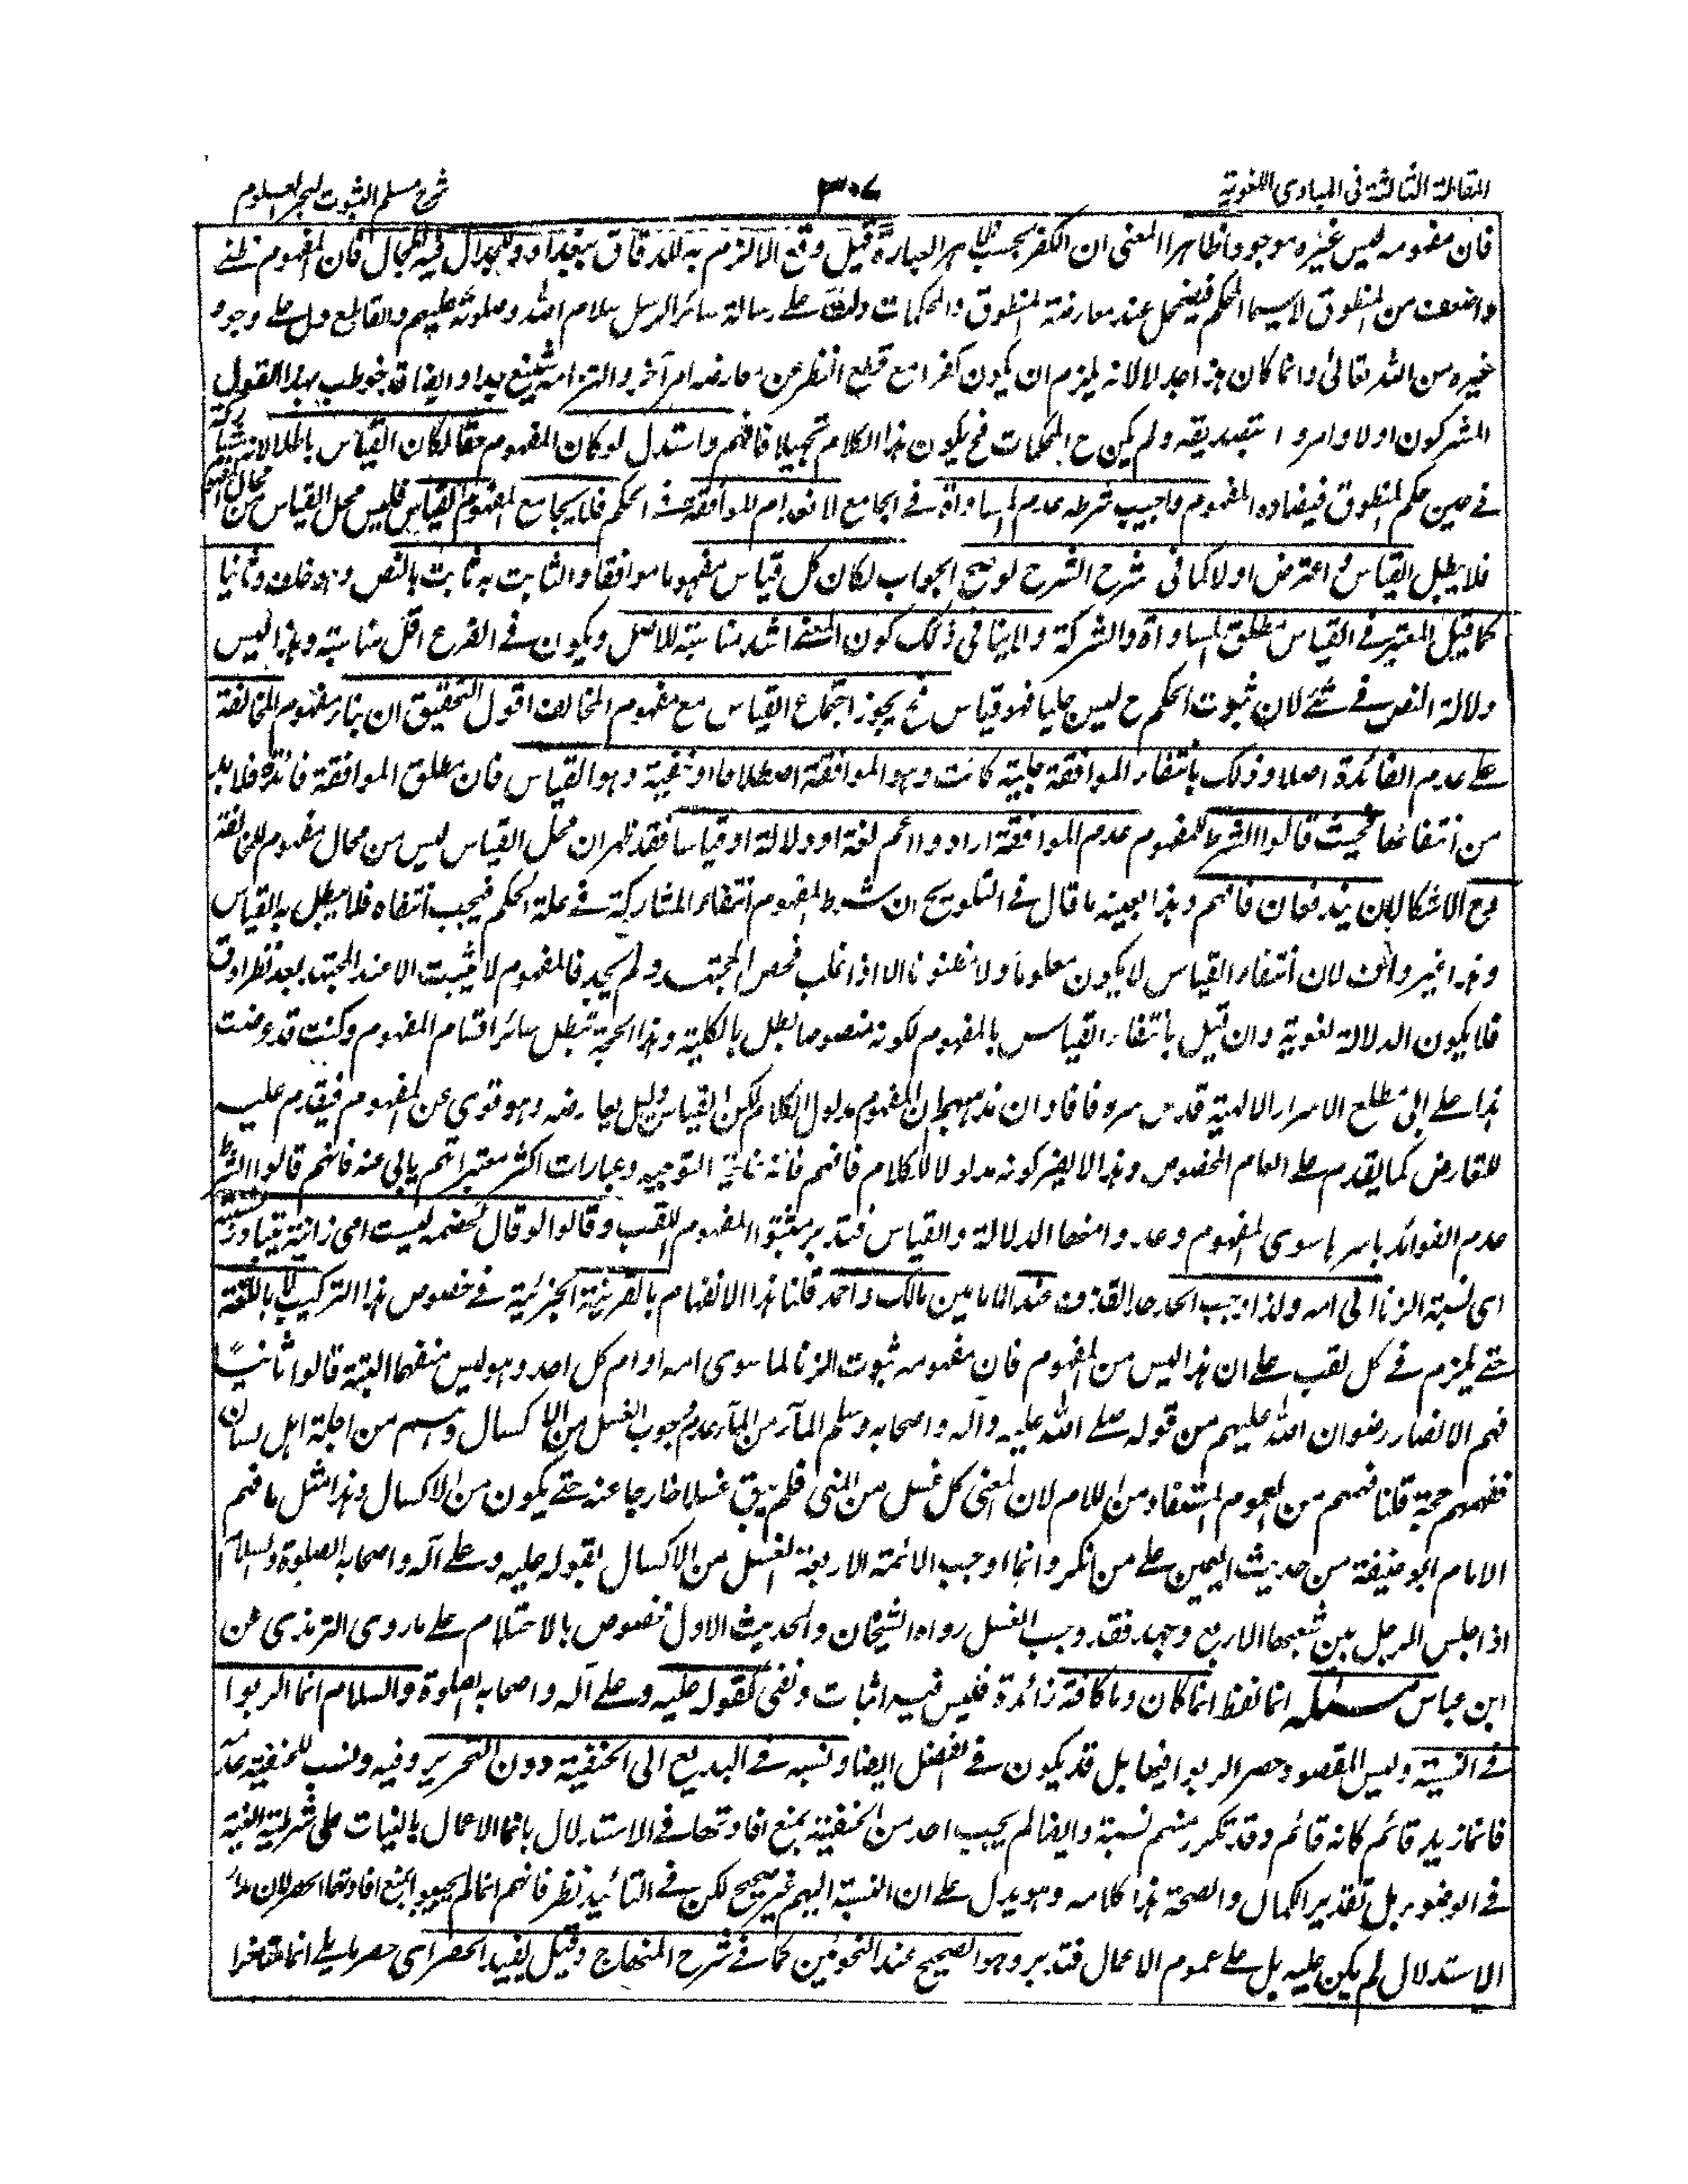 المقالة الثالثة فى المبادى اللغوية
٣٠٧
شرح مسلم الثبوت لبحر العلوم
فان مفهومه ليس غيره موجودا ظاهرا المعنى ان الكفر بحسب ظاهر العبارة قيل وقع الالزم به للدقاق ببغداد وللجدال فيه مجال فان المفهوم ظنى
واضعف من المنطوق لاسيما المحكم فيضمحل عند معارضة المنطوق والمحكمات دلت على رسالة سائر الرسل سلام الله وصلوته عليهم والقاطع دل على وجود
غيره من الله تعالى وانما كان هذا جدلا لانه يلزم ان يكون كفرا مع قطع النظر عن معارضه امر آخر والتزامه شنيع جدا وايضا قد خوطب بهذا القول
المشركون اولا وامروا بتصديقه ولم يكن ح المحكمات فح يكون هذا الكلام تجهيلا فافهم واستدل لو كان المفهوم حقا لكان القياس باطلا لانه شركة
فى حين حكم المنطوق فيضاده المفهوم واجيب شرطه عدم المساواة فى الجامع لانعدام الموافقة فى الحكم فلا يجامع المفهوم القياس فليس محل القياس من محال المفهوم
فلا يبطل القياس فح اعترض اولا كما فى شرح الشرح لو صح الجواب لكان كل قياس مفهوما موافقا والثابت به ثابت بالنص وهو خلف وثانيا
كما قيل المعتبر فى القياس مطلق المساواة والشركة ولا ينافى ذلك كون المعنى اشد مناسبة للاصل ويكون فى الفرع اقل مناسبة وهذا ليس
دلالة النص فى شئ لان ثبوت الحكم ح ليس جليا فهو قياس فح يجوز اجتماع القياس مع مفهوم المخالف اقول التحقيق ان بناء مفهوم المخالفة
على عدم الفائدة اصلا وذلك بانتفاء الموافقة جلية كانت وهو الموافقة اصطلاحا او خفية وهو القياس فان مطلق الموافقة فائدة فلا بد
من انتفائها فحيث قالوا الشرط للمفهوم عدم الموافقة ارادوا اعم لغة او دلالة او قياسا فقد ظهر ان محل القياس ليس من محال مفهوم المخالفة
فح الاشكالان يندفعان فافهم وهذا بعينه ما قال فى التلويح ان شرط المفهوم انتفاء المشاركة فى علة الحكم فيجب انتفاه فلا يبطل به القياس
وهذا غير واف لان انتفاء القياس لا يكون معلوما ولا مظنونا الا اذا غلب فحص المجتهد ولم يجد فالمفهوم لا يثبت الا عند المجتهد بعد نظر ادق
فلا يكون الدلالة لغوية وان قيل بانتفاء القياس بالمفهوم لكونه منصوصا بطل بالكلية وهذا الحجة تبطل سائر اقسام المفهوم وكنت قد عرضت
هذا على ابى مطلع الاسرار الالهية قدس سره فافاد ان مذهبهم ان المفهوم مدلول الكلام لكن القياس دليل يعارضه وهو قوى من المفهوم فيقدم عليه
للتعارض كما يقدم على العام المخصوص وهذا لا يضر كونه مدلولا للكلام فافهم فانه غاية التوجيه وعبارات اكثر معتبراتهم يابى عنه فافهم قالوا الشرط
عدم الفوائد باسرها سوى المفهوم وعدوا منها الدلالة والقياس فتدبر مثبتوا المفهوم اللقب وقالوا لو قال لخصمه ليست امى زانية يتبادر نسبته
اى نسبة الزنا الى امه ولذا وجب الحد حد القذف عند الامامين مالك واحمد قلنا هذا الانفهام بالقرينة الجزئية فى خصوص هذا التركيب لا باللغة
حتى يلزم فى كل لقب على ان هذا ليس من المفهوم فان مفهومه ثبوت الزنا لما سوى امه او ام كل احد وهو ليس منفهما البتة قالوا ثانيا
فهم الانصار رضوان الله عليهم من قوله صلى الله عليه وآله واصحابه وسلم المآء من المآء عدم وجوب الغسل من الاكسال وهم من اجلة اهل لسان
ففهمهم حجة قلنا فهمهم من العموم المستفاد من اللام لان المعنى كل غسل من المنى فلم يبق غسلا خارجا عنه حتى يكون من الاكسال وهذا مثل ما فهم
الامام ابو حنيفة من حديث اليمين على من انكر وانما اوجب الائمة الاربعة الغسل من الاكسال لقوله عليه وعلى آله واصحابه الصلوة والسلام
اذا جلس الرجل بين شعبها الاربع وجهد فقد وجب الغسل رواه الشيخان والحديث الاول مخصوص بالاحتلام على ما روى الترمذى عن
ابن عباس مسئلة انما لفظ انما كان وما كافة زائدة فليس فيه اثبات ونفى كقوله عليه وعلى آله واصحابه الصلوة والسلام انما الربوا
فى النسية وليس المقصود حصر الربوا فيها بل قد يكون فى الفضل ايضا ونسبه فى البديع الى الحنفية دون التحرير وفيه ونسب للحنفية عدمه
فانما زيد قائم كانه قائم وقد تكرر منهم نسبة وايضا لم يجب احد من الحنفية بمنع افادتها فى الاستدلال بانما الاعمال بالنيات على شرطية النية
فى الوضوء بل تقدير الكمال والصحة هذا كلامه وهو يدل على ان النسبة اليهم غير صحيح لكن فى التائيد نظر فانهم انما لم يجيبوا بمنع افادتها الحصر لان مدار
الاستدلال لم يكن عليه بل على عموم الاعمال فتدبر وهو الصحيح عند النحويين كما فى شرح المنهاج وقيل يفيد الحصر اى حصر ما يلى انما متاخرا